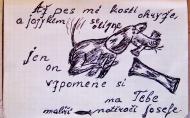 Až pes mé kosti ohryže,
a jojykem se olígne
jen
on
vzpomene si
na Tebe
malíř- natěrači Josefe